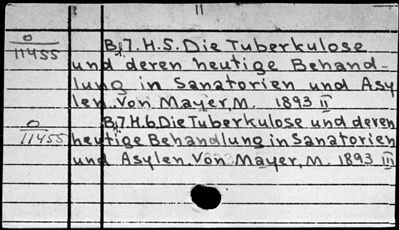 11
O
11455
Bd7.H.5. Die Tuberkulose
und deren heutige Behand-
lung in Sanatorien und Asy
len. Von Mayer, M. 1893 II
O
11455
Bd7.H.6 Die Tuberkulose und deren
heutige Behandlung in Sanatorien
und Asylen. Von Mayer, M. 1893 III